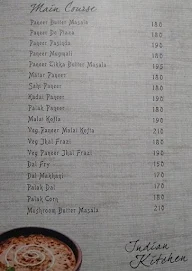 Main Course
Paneer Butter Masala 180
Paneer Do Piaza 180
Paneer Punjabi 190
Paneer Mughlai 180
Paneer Tikka Butter Masala 195
Matar Paneer 180
Sahi Paneer 180
Kadai Paneer 190
Palak Paneer 180
Malai Kofta 190
Veg Paneer Malai Kofta 210
Veg Jhal Frazi 180
Veg Paneer Jhal Frazi 190
Dal Fry 150
Dal Makhani 170
Palak Dal 170
Palak Corn 180
Mushroom Butter Masala 210
Indian
Kitchen